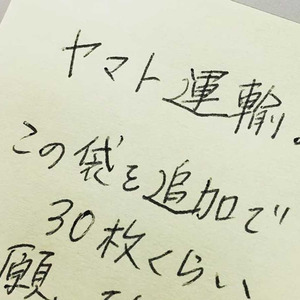 ヤマト運輸。
この袋を追加で
30枚くらい
願